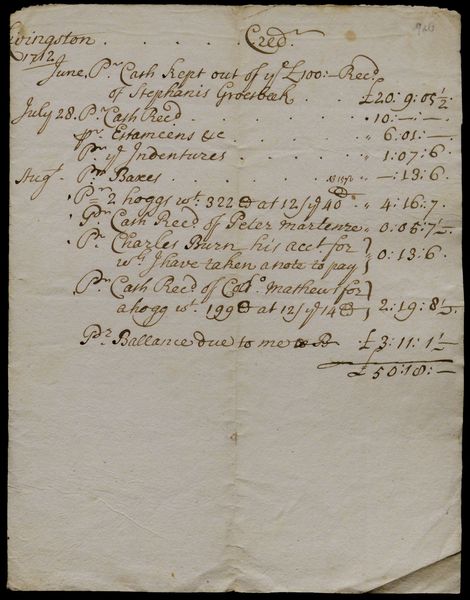 Livingston . . . . . Cred.r
1712
June, P.r Cash kept out of y.e £100:– Rec.d
of Stephanis Groesbeek . . £20: 9: 05½
July 28. P.r Cash Rec.d . . . . . „ 10:—:—
pr. Estameens &c . . . . „ 6:01:—
P.r y.e Indentures . . . . „ 1:07:6.
Aug.t P.r Baxes . . . . „ —:13:6.
P.r 2 hoggs w.t 322 at 12/ y.e 40 „ 4:16:7.
P.r Cash Rec.d of Peter Martenze „ 0:05:7½
P.r Charles Burn his acct for
w.h I have taken a note to pay } „ 0:13:6.
P.r Cash Rec.d of Coll.o Mathews for
a hogg w.t 199 at 12/ y.e 14 } 2:19:8½
P.r Ballance due to me £3:11:1½
£50:18:—